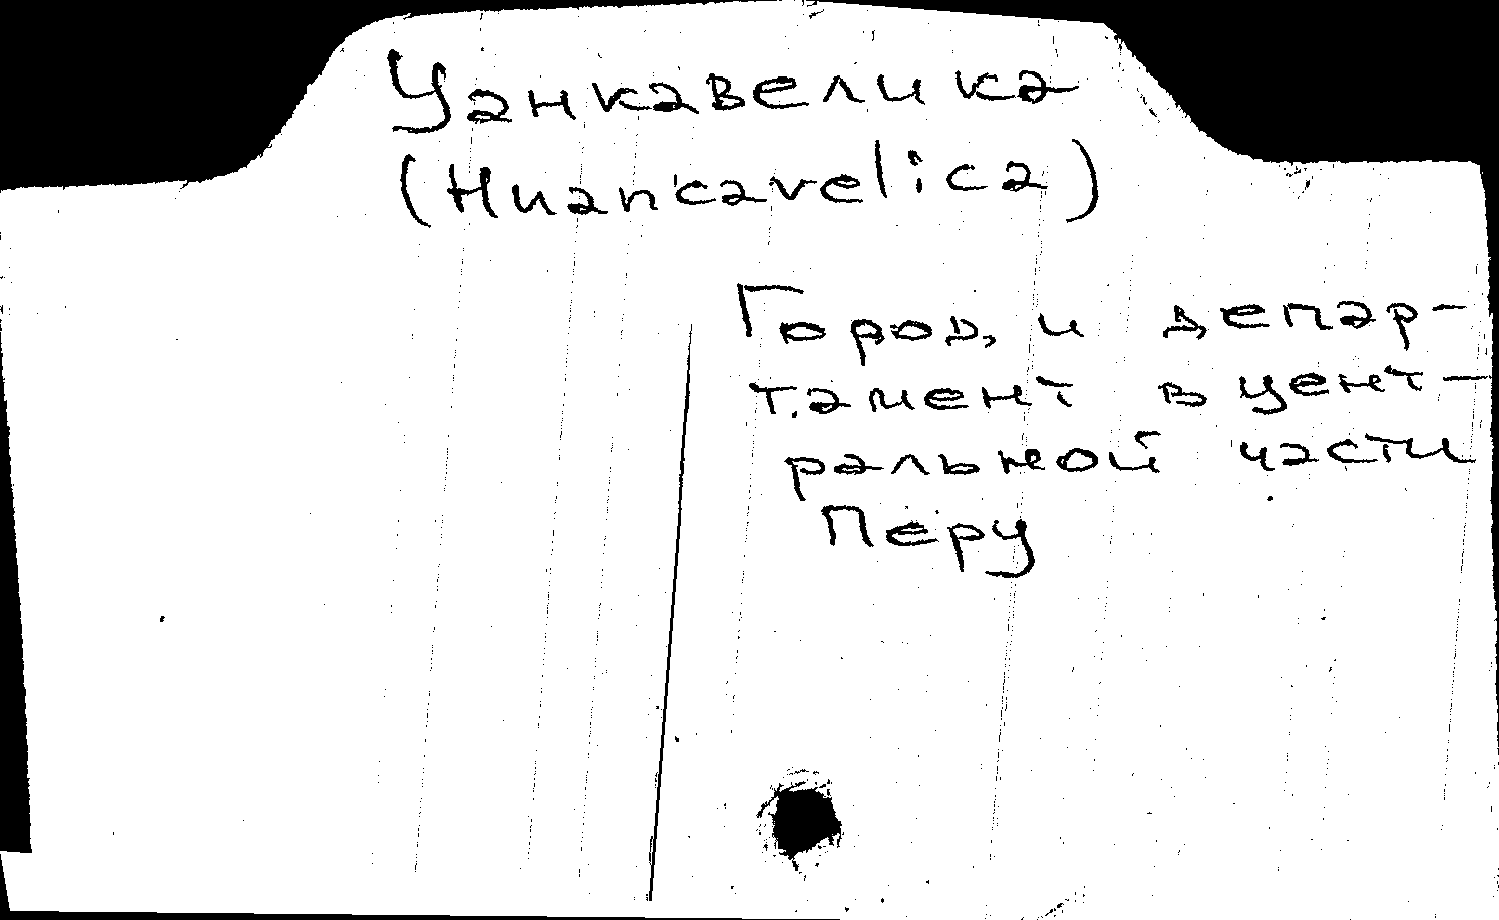 Уанкавелика
(Huancavelica)
Город, и депар-
тамент в цент-
ральной части
Перу